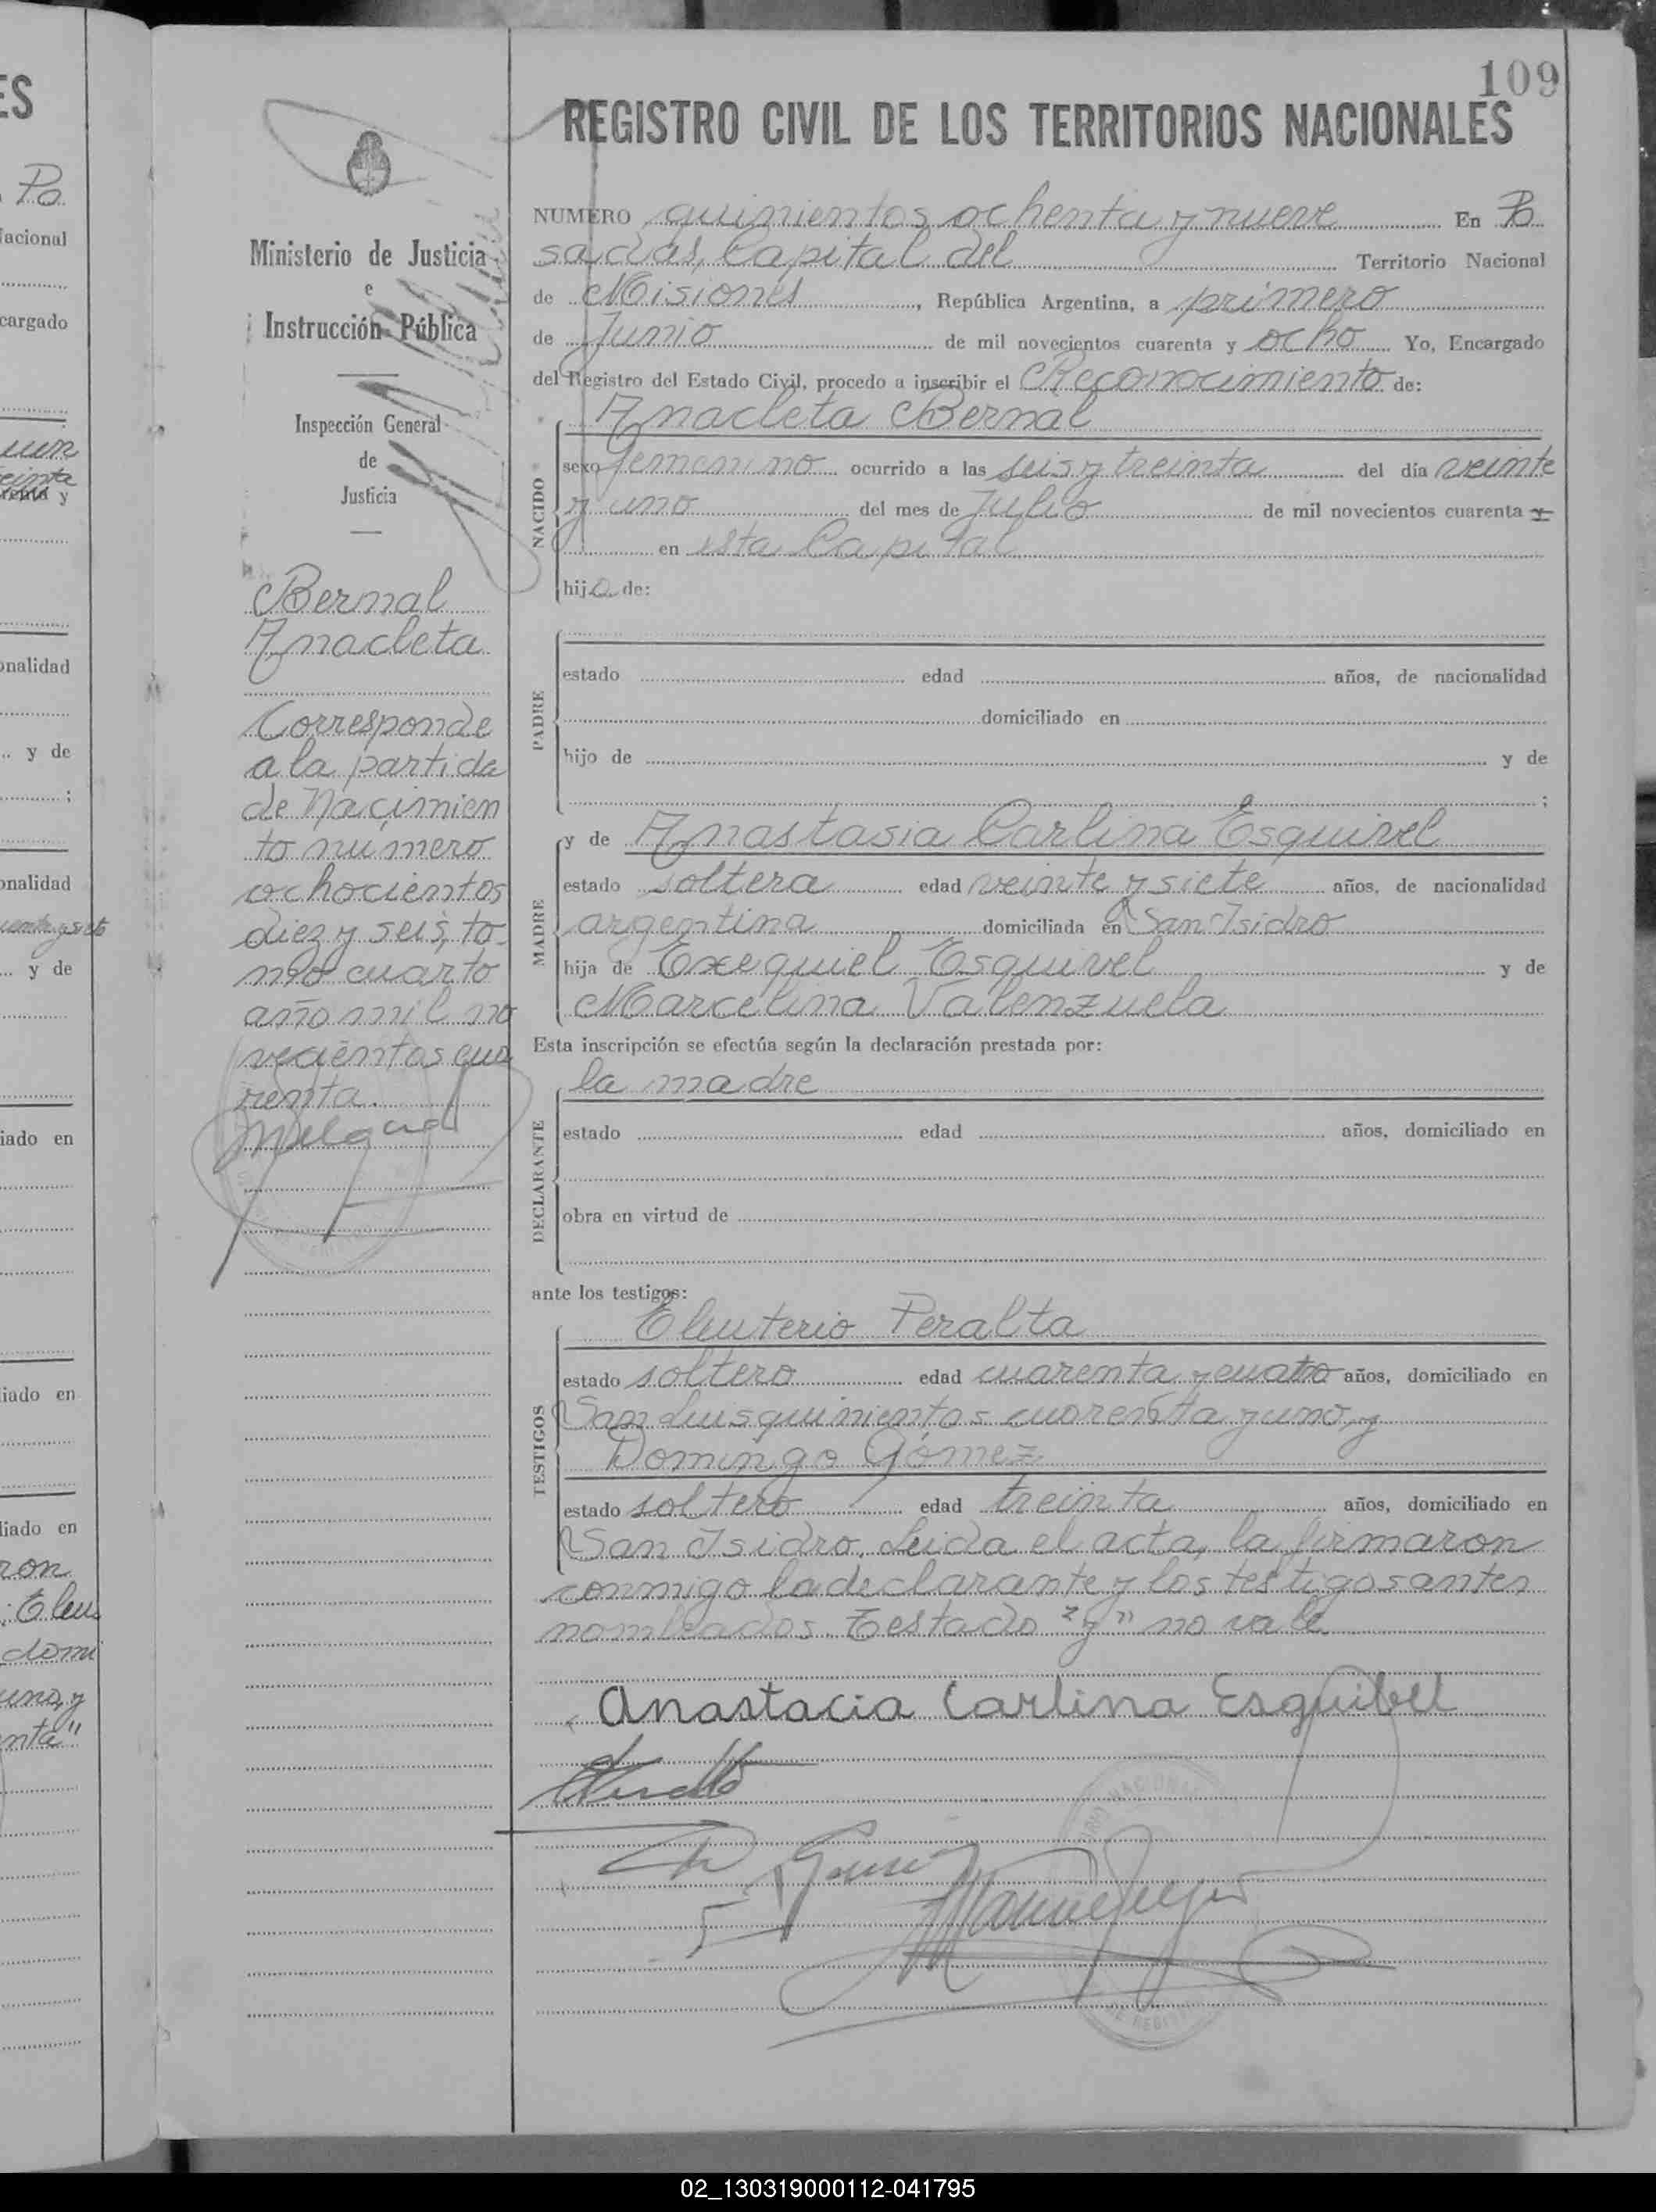 ES
Po
Nacional
cargado
y
onalidad
y de
;
onalidad
y de
iado en
liado en
liado en
ron
Eleu
domi
uno, y
109
Ministerio de Justicia
e
Instrucción Pública
Inspección General
de
Justicia
Bernal
Anacleta
Corresponde
a la partida
de Nacimien
to número
ochocientos
diez y seis, to
mo cuarto
año mil no
vecientos cua
renta.
REGISTRO CIVIL DE LOS TERRITORIOS NACIONALES
NUMERO quinientos ochenta y nueve En Po
sadas, Capital del Territorio Nacional
de Misiones, República Argentina, a primero
de Junio de mil novecientos cuarenta y ocho Yo, Encargado
del Registro del Estado Civil, procedo a inscribir el Reconocimiento de:
Anacleta Bernal
NACIDO
sexo femenino ocurrido a las seis y treinta del día veinte
y uno del mes de Julio de mil novecientos cuarenta y
en esta Capital
hija de:
PADRE
estado edad años, de nacionalidad
domiciliado en
hijo de y de
;
MADRE
y de Anastasia Carlina Esquivel
estado soltera edad veinte y siete años, de nacionalidad
argentina domiciliada en San Isidro
hija de Exequiel Esquivel y de
Marcelina Valenzuela
Esta inscripción se efectúa según la declaración prestada por:
la madre
DECLARANTE
estado edad años, domiciliado en
obra en virtud de
ante los testigos:
TESTIGOS
Eleuterio Peralta
estado soltero edad cuarenta y cuatro años, domiciliado en
San Luis quinientos cuarenta y uno, y
Domingo Gómez
estado soltero edad treinta años, domiciliado en
San Isidro. Leida el acta, la firmaron
conmigo la declarante y los testigos antes
nombrados. Testado "y" no vale
Anastacia Carlina Esquibel
02_130319000112-041795